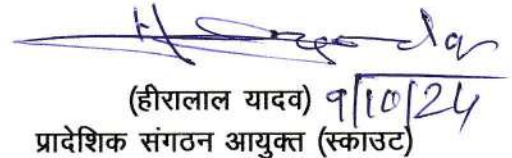 (हीरालाल यादव) 9/10/24
प्रादेशिक संगठन आयुक्त (स्काउट)